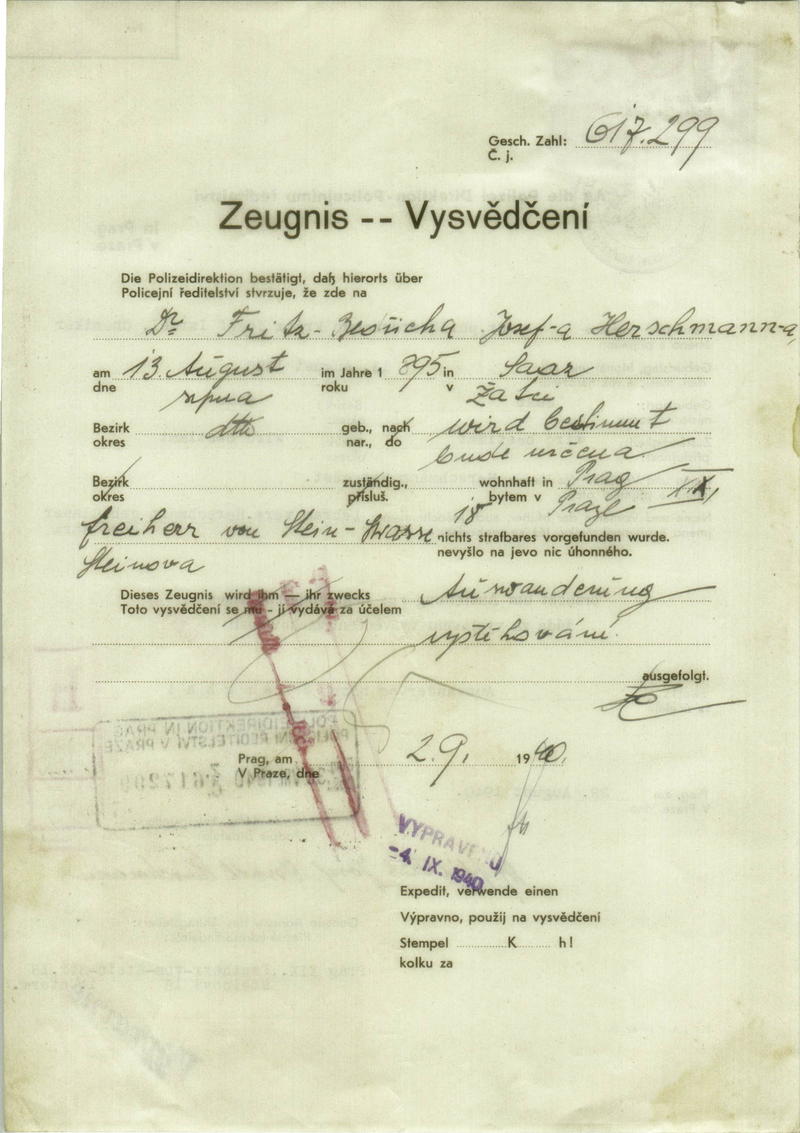 Gesch. Zahl: 617.299
Č. j.
Zeugnis -- Vysvědčení
Die Polizeidirektion bestätigt, daß hierorts über
Policejní ředitelství stvrzuje, že zde na
Dr. Fritz- Josef-a Herschmann-a,
am 13. August im Jahre 1 895 in Saaz
dne srpna roku v Žatci
Bezirk dtto geb., nach wird bestimmt
okres nar., do bude určena
Bezirk zuständig., wohnhaft in Prag XIX,
okres přísluš. bytem v Praze
freiherr von Stein-Strasse 18 nichts strafbares vorgefunden wurde.
Steinova nevyšlo na jevo nic úhonného.
Dieses Zeugnis wird ihm — ihr zwecks Auswanderung
Toto vysvědčení se mu - jí vydává za účelem
vystěhování.
ausgefolgt.
POLIZEIDIREKTION IN PRAG
POLICEJNÍ ŘEDITELSTVÍ V PRAZE
Prag, am 2.9. 1940.
V Praze, dne
VYPRAVENO
-4. IX. 1940
Expedit, verwende einen
Výpravno, použij na vysvědčení
Stempel K h!
kolku za